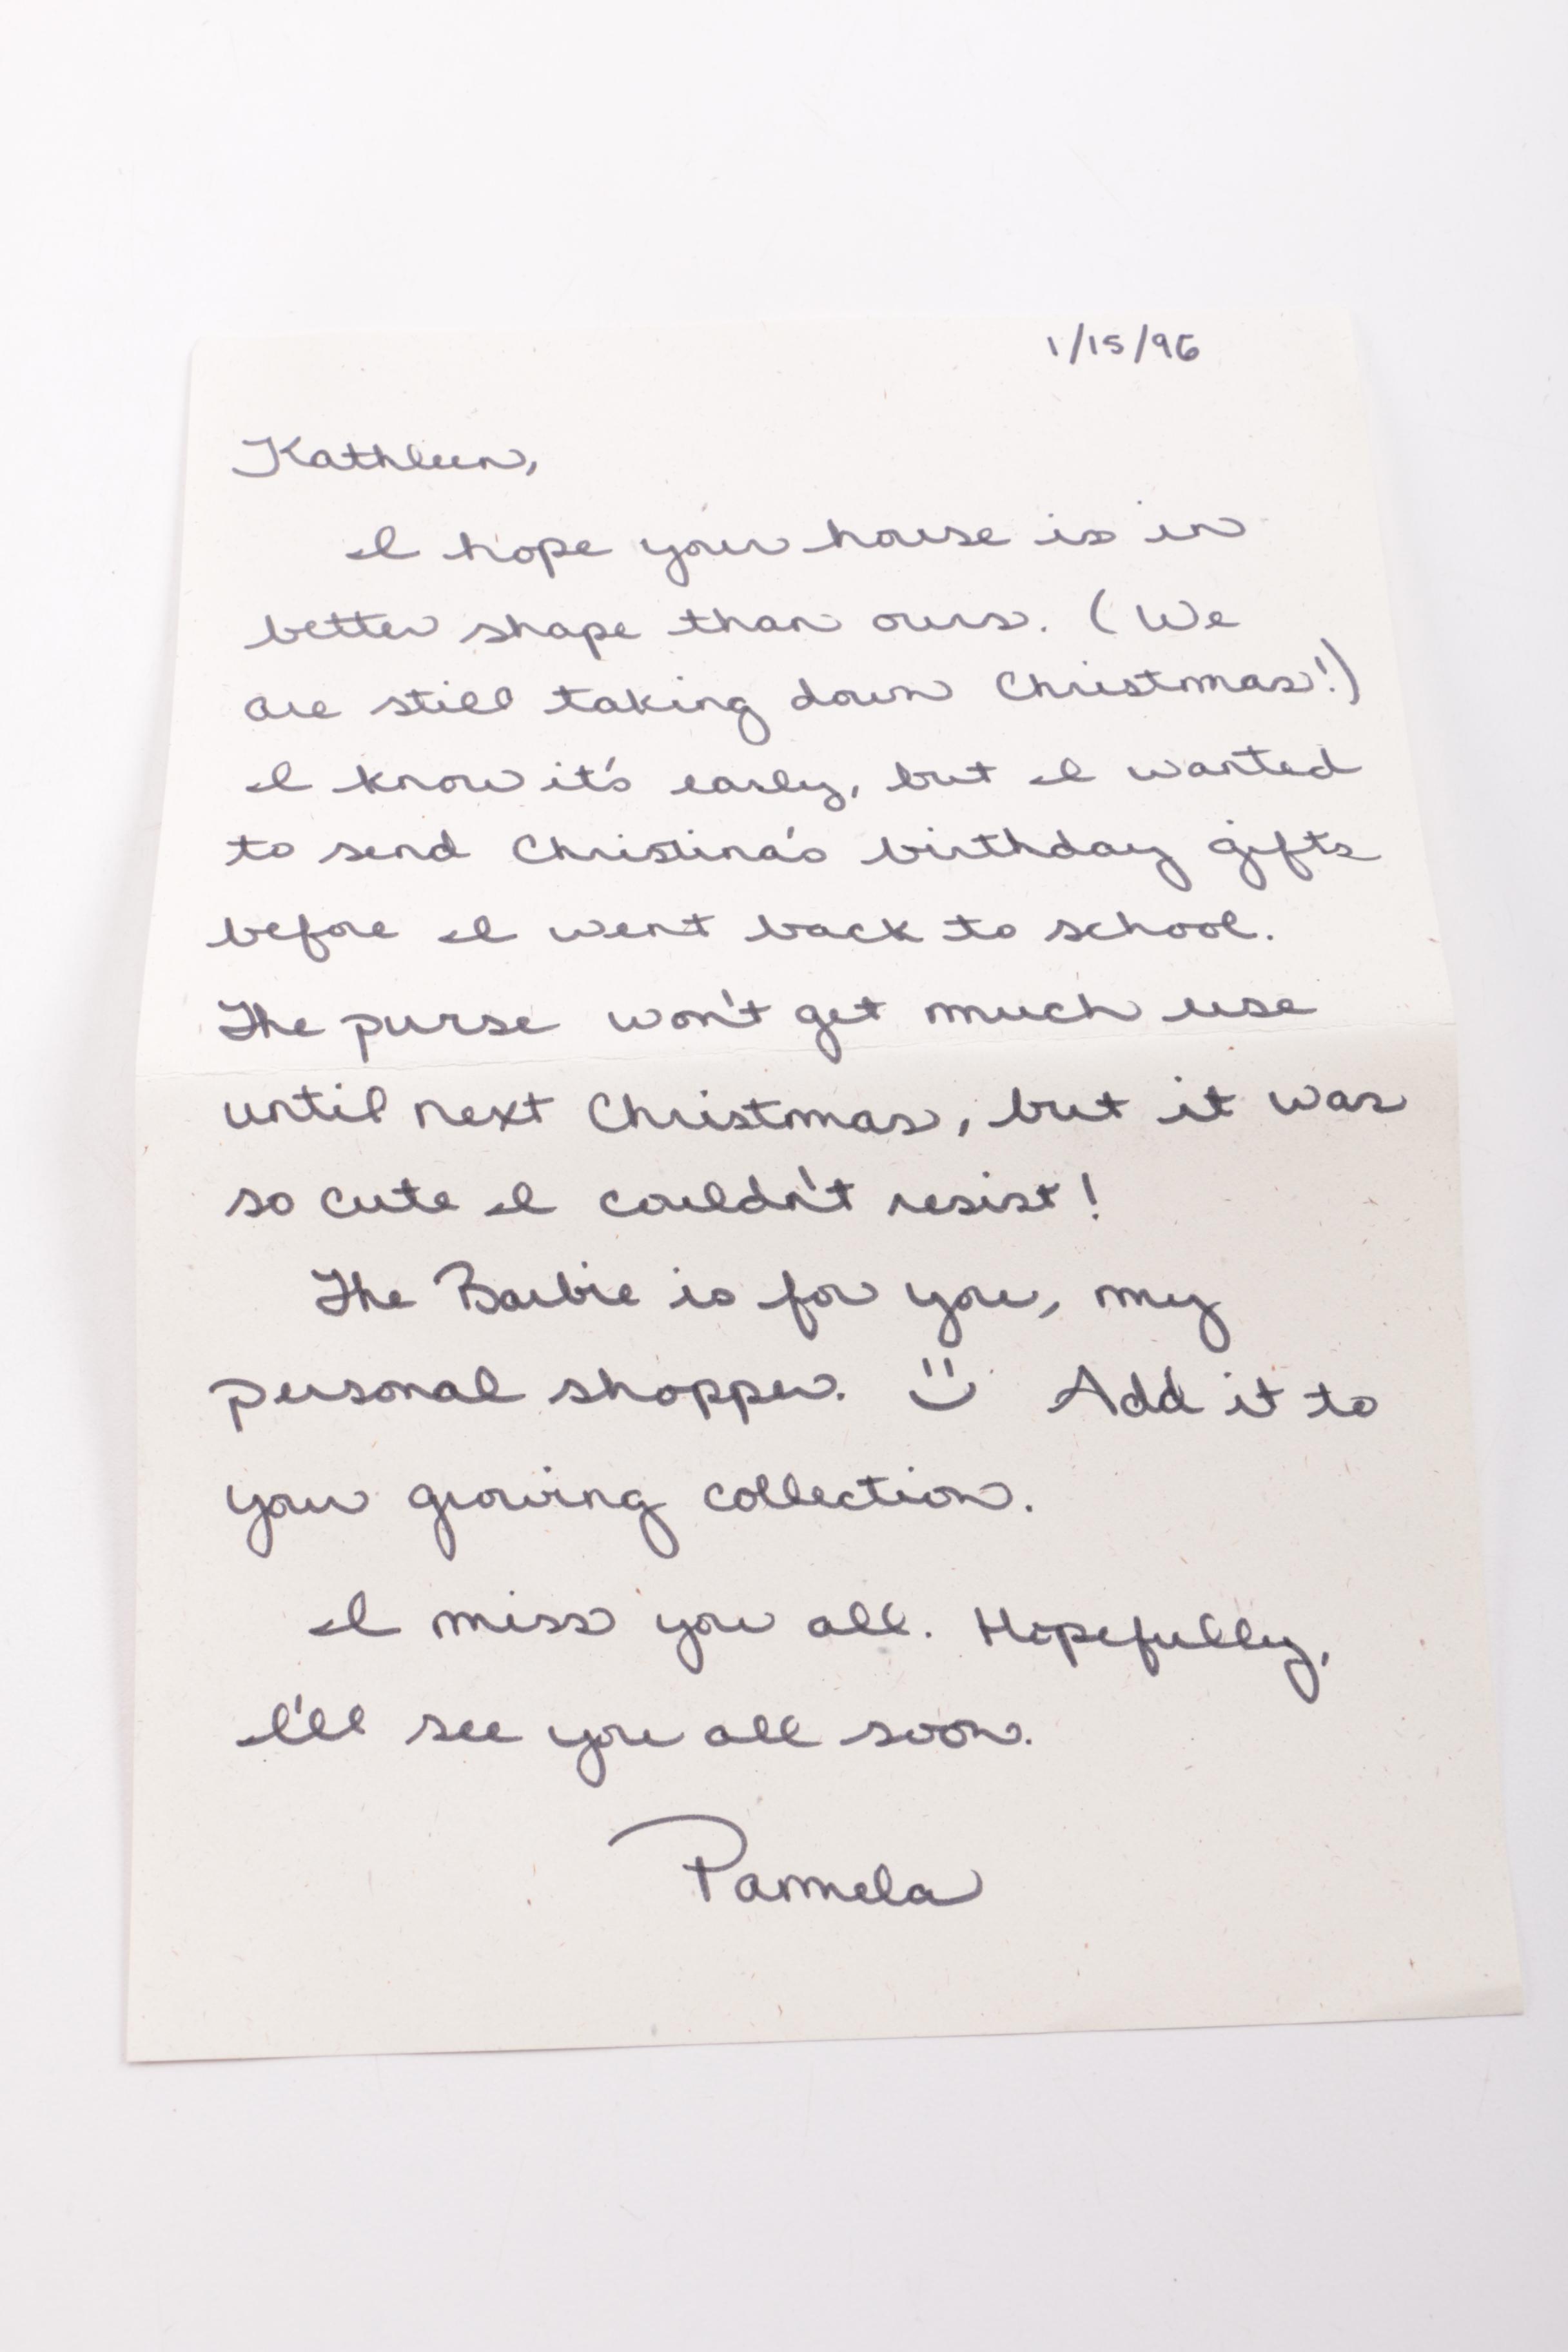 1/15/96
Kathleen,
I hope your house is in
better shape than ours. (We
are still taking down Christmas!)
I know it's early, but I wanted
to send Christina's birthday gifts
before I went back to school.
The purse won't get much use
until next Christmas, but it was
so cute I couldn't resist!
The Barbie is for you, my
personal shopper. :) Add it to
your growing collection.
I miss you all. Hopefully,
I'll see you all soon.
Pamela